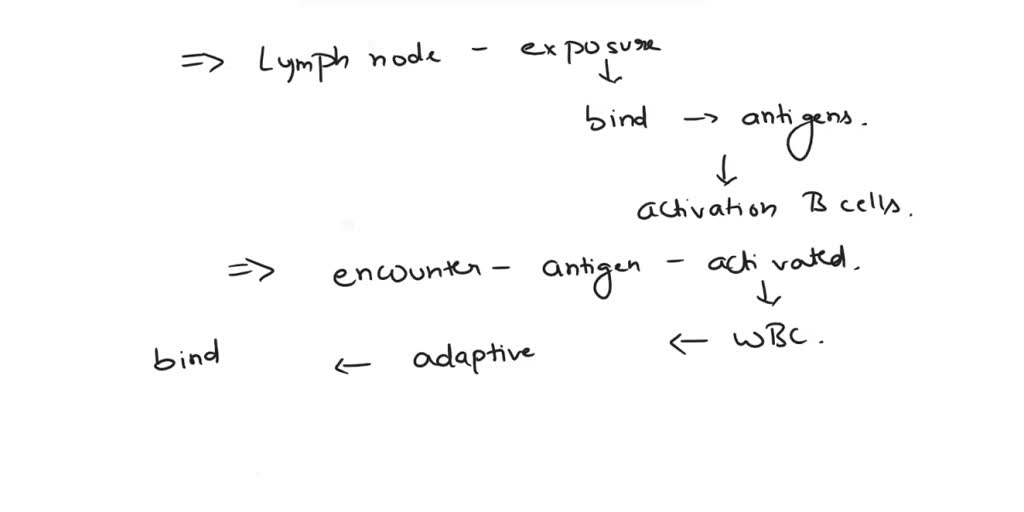 ⇒ Lymph node - exposure
↓
bind → antigens.
↓
activation B cells.
⇒ encounter - antigen - activated.
↓
bind ← adaptive ← WBC.